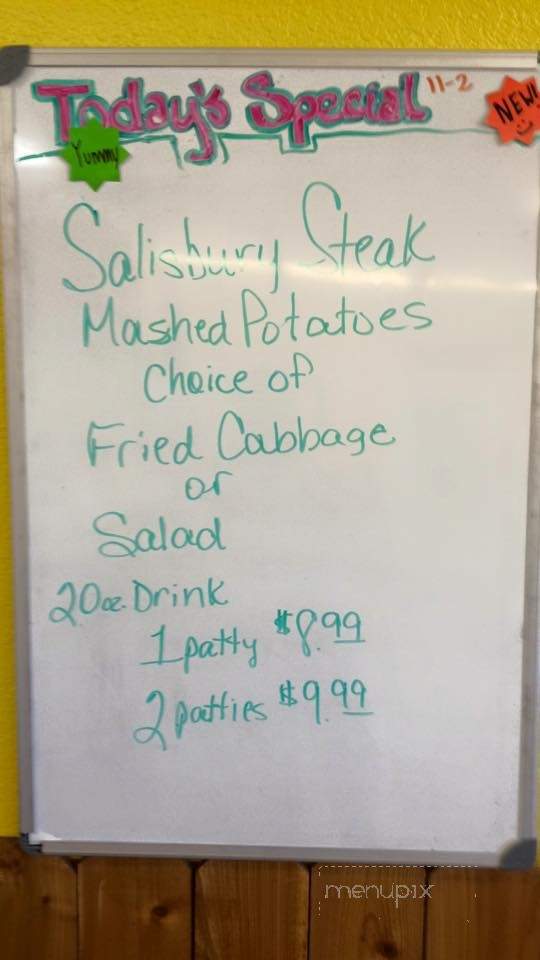 Today's Special 11-2
NEW!
Yummy
Salisbury Steak
Mashed Potatoes
Choice of
Fried Cabbage
or
Salad
20oz. Drink
1 patty $8.99
2 patties $9.99
menupix